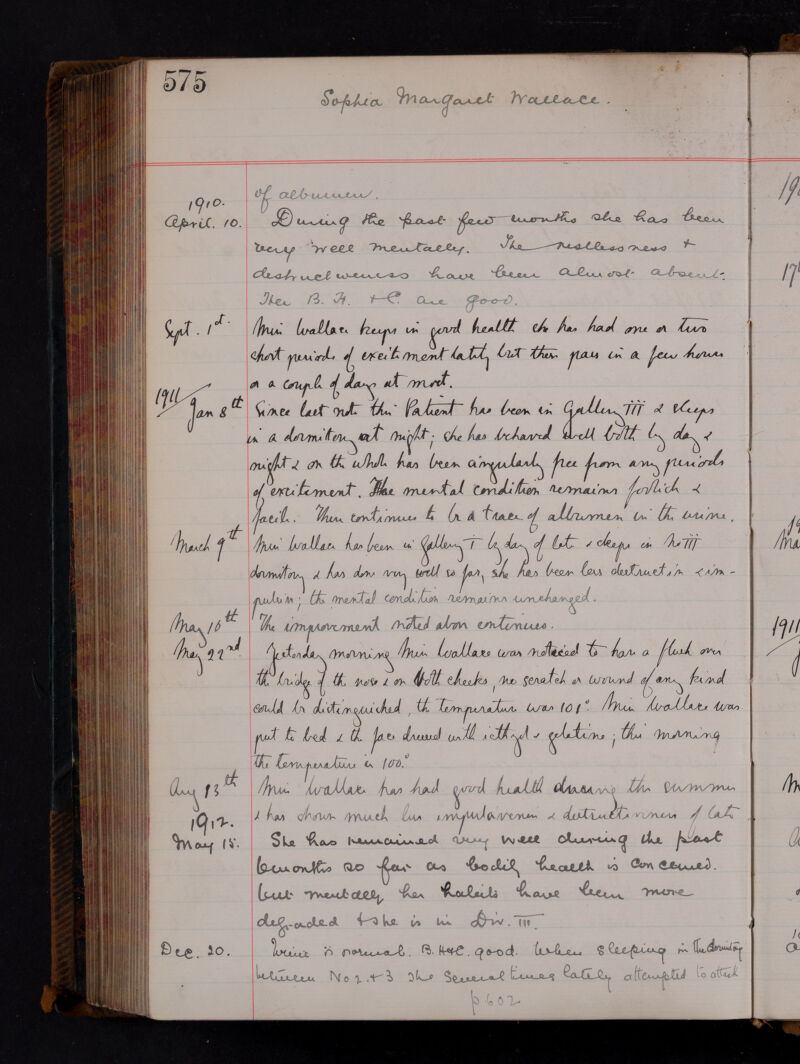 575
Sophia Margaret Wallace.
of albumen.
1910.
April. 10. During the past few months she has been
very well mentally. The restlessness +
destructiveness have been almost absent.
Her B. H. + C. are good.
Sept. 1st. Miss Wallace keeps in good health she has had one or two
short periods of excitement lately but they pass in a few hours
or a couple of days at most.
1911
Jan 8th Since last note this Patient has been in Gallery III & sleeps
in a dormitory at night; she has behaved well both by day &
night & on the whole has been singularly free from any periods
of excitement. The mental condition remains foolish &
facile. There continues to be a trace of albumen in the urine.
March 9th Miss Wallace has been in Gallery I by day of late & sleeps in No III
dormitory & has done very well so far, she has been less destructive & im-
pulsive; the mental condition remains unchanged.
May 10th The improvement noted above continues.
May 22nd. Yesterday morning Miss Wallace was noticed to have a flush over
the bridge of the nose & on both cheeks, no scratch or wound of any kind
could be distinguished, the temperature was 101° Miss Wallace was
put to bed & the face dressed with icthyol & gelatine; this morning
the temperature is 100.°
Aug 13th Miss Wallace has had good health during the summer
& has shown much less impulsiveness & destructiveness of late
1912.
May 15. She has remained very well during the past
6 months so far as bodily health is concerned.
but mentally her habits have been more
degraded + she is in Div. III.
Dec. 20. Urine is normal. B. H&C. good. When sleeping in the dormitory
between No 2. + 3 she several times lately attempted to attack
p 602
19
17
19
Ma
1911
M